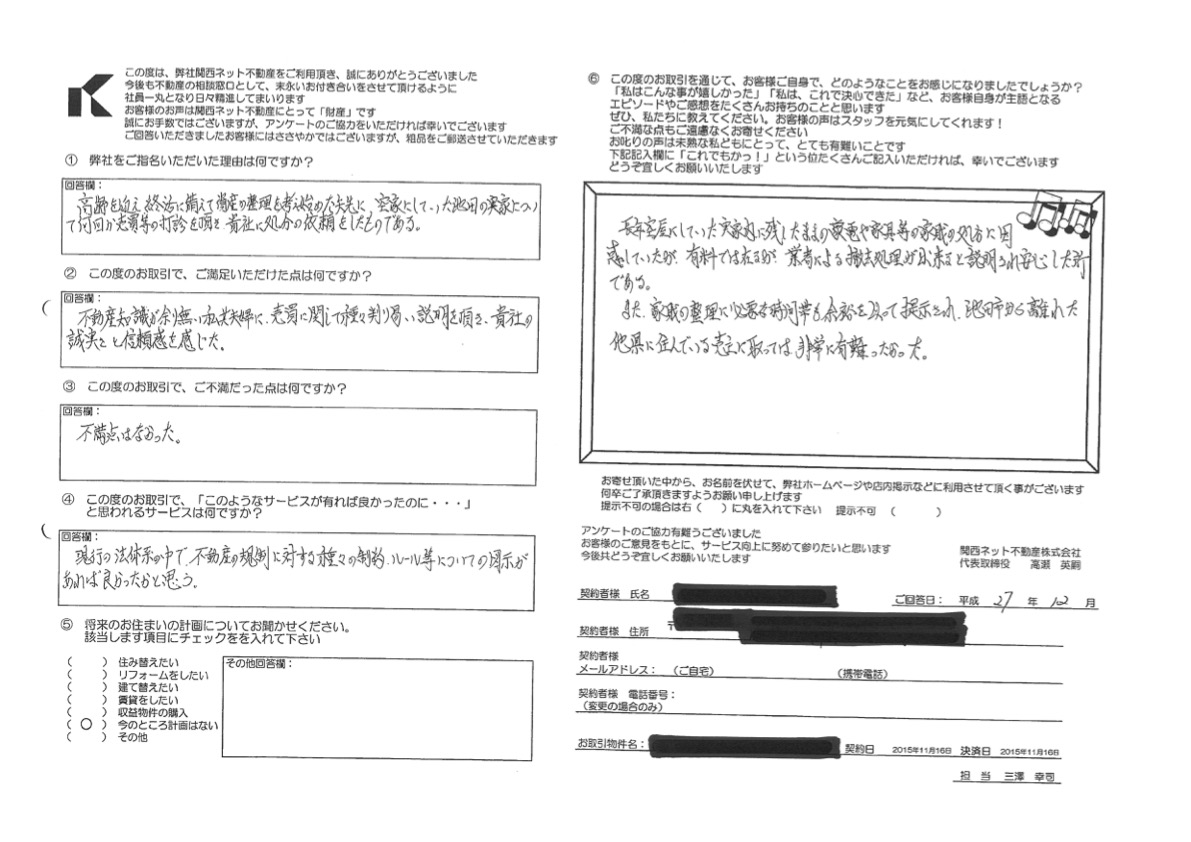 この度は、弊社関西ネット不動産をご利用頂き、誠にありがとうございました
今後も不動産の相談窓口として、末永いお付き合いをさせて頂けるように
社員一丸となり日々精進してまいります
お客様のお声は関西ネット不動産にとって「財産」です
誠にお手数ではございますが、アンケートのご協力をいただければ幸いでございます
ご回答いただきましたお客様にはささやかではございますが、粗品をご郵送させていただきます
① 弊社をご指名いただいた理由は何ですか？
回答欄：
高齢を迎え終活に備えて資産の整理を考え始めた矢先に、空家にしていた池田の実家につい
て何回か売買等の打診を頂き貴社に処分の依頼をしたものである。
② この度のお取引で、ご満足いただけた点は何ですか？
回答欄：
不動産知識が余り無い私共夫婦に、売買に関して種々判り易い説明を頂き、貴社の
誠実さと信頼感を感じた。
③ この度のお取引で、ご不満だった点は何ですか？
回答欄：
不満点はなかった。
④ この度のお取引で、「このようなサービスが有れば良かったのに・・・」
と思われるサービスは何ですか？
回答欄：
現行の法体系の中で、不動産の規制に対する種々の制約、ルール等についての図示が
あれば良かったかと思う。
⑤ 将来のお住まいの計画についてお聞かせください。
該当します項目にチェックをを入れて下さい
（　）住み替えたい
（　）リフォームをしたい
（　）建て替えたい
（　）賃貸をしたい
（　）収益物件の購入
（〇）今のところ計画はない
（　）その他
その他回答欄：
⑥ この度のお取引を通じて、お客様ご自身で、どのようなことをお感じになりましたでしょうか？
「私はこんな事が嬉しかった」「私は、これで決心できた」など、お客様自身が主語となる
エピソードやご感想をたくさんお持ちのことと思います
ぜひ、私たちに教えてください。お客様の声はスタッフを元気にしてくれます！
ご不満な点もご遠慮なくお寄せください
お叱りの声は未熟な私どもにとって、とても有難いことです
下記記入欄に「これでもかっ！」という位たくさんご記入いただければ、幸いでございます
どうぞ宜しくお願いいたします
長年空居にしていた実家内に残したままの家電や家具等の家財の処分に困
惑していたが、有料ではあるが、業者による撤去処理が出来ると説明され安心した所
である。
また、家財の整理に必要な時間帯も余裕を以って提示され、池田市から離れた
他県に住んでいる売主に取っては非常に有難ったかった。
お寄せ頂いた中から、お名前を伏せて、弊社ホームページや店内掲示などに利用させて頂く事がございます
何卒ご了承頂きますようお願い申し上げます
提示不可の場合は右（　）に丸を入れて下さい　提示不可　（　　　）
アンケートのご協力有難うございました
お客様のご意見をもとに、サービス向上に努めて参りたいと思います
今後共どうぞ宜しくお願いいたします
関西ネット不動産株式会社
代表取締役　高瀬　英嗣
契約者様　氏名
ご回答日：　平成　27　年　12　月
契約者様　住所　〒
契約者様
メールアドレス：　（ご自宅）　（携帯電話）
契約者様　電話番号：
（変更の場合のみ）
お取引物件名：　契約日　2015年11月16日　決済日　2015年11月16日
担　当　三澤　幸司